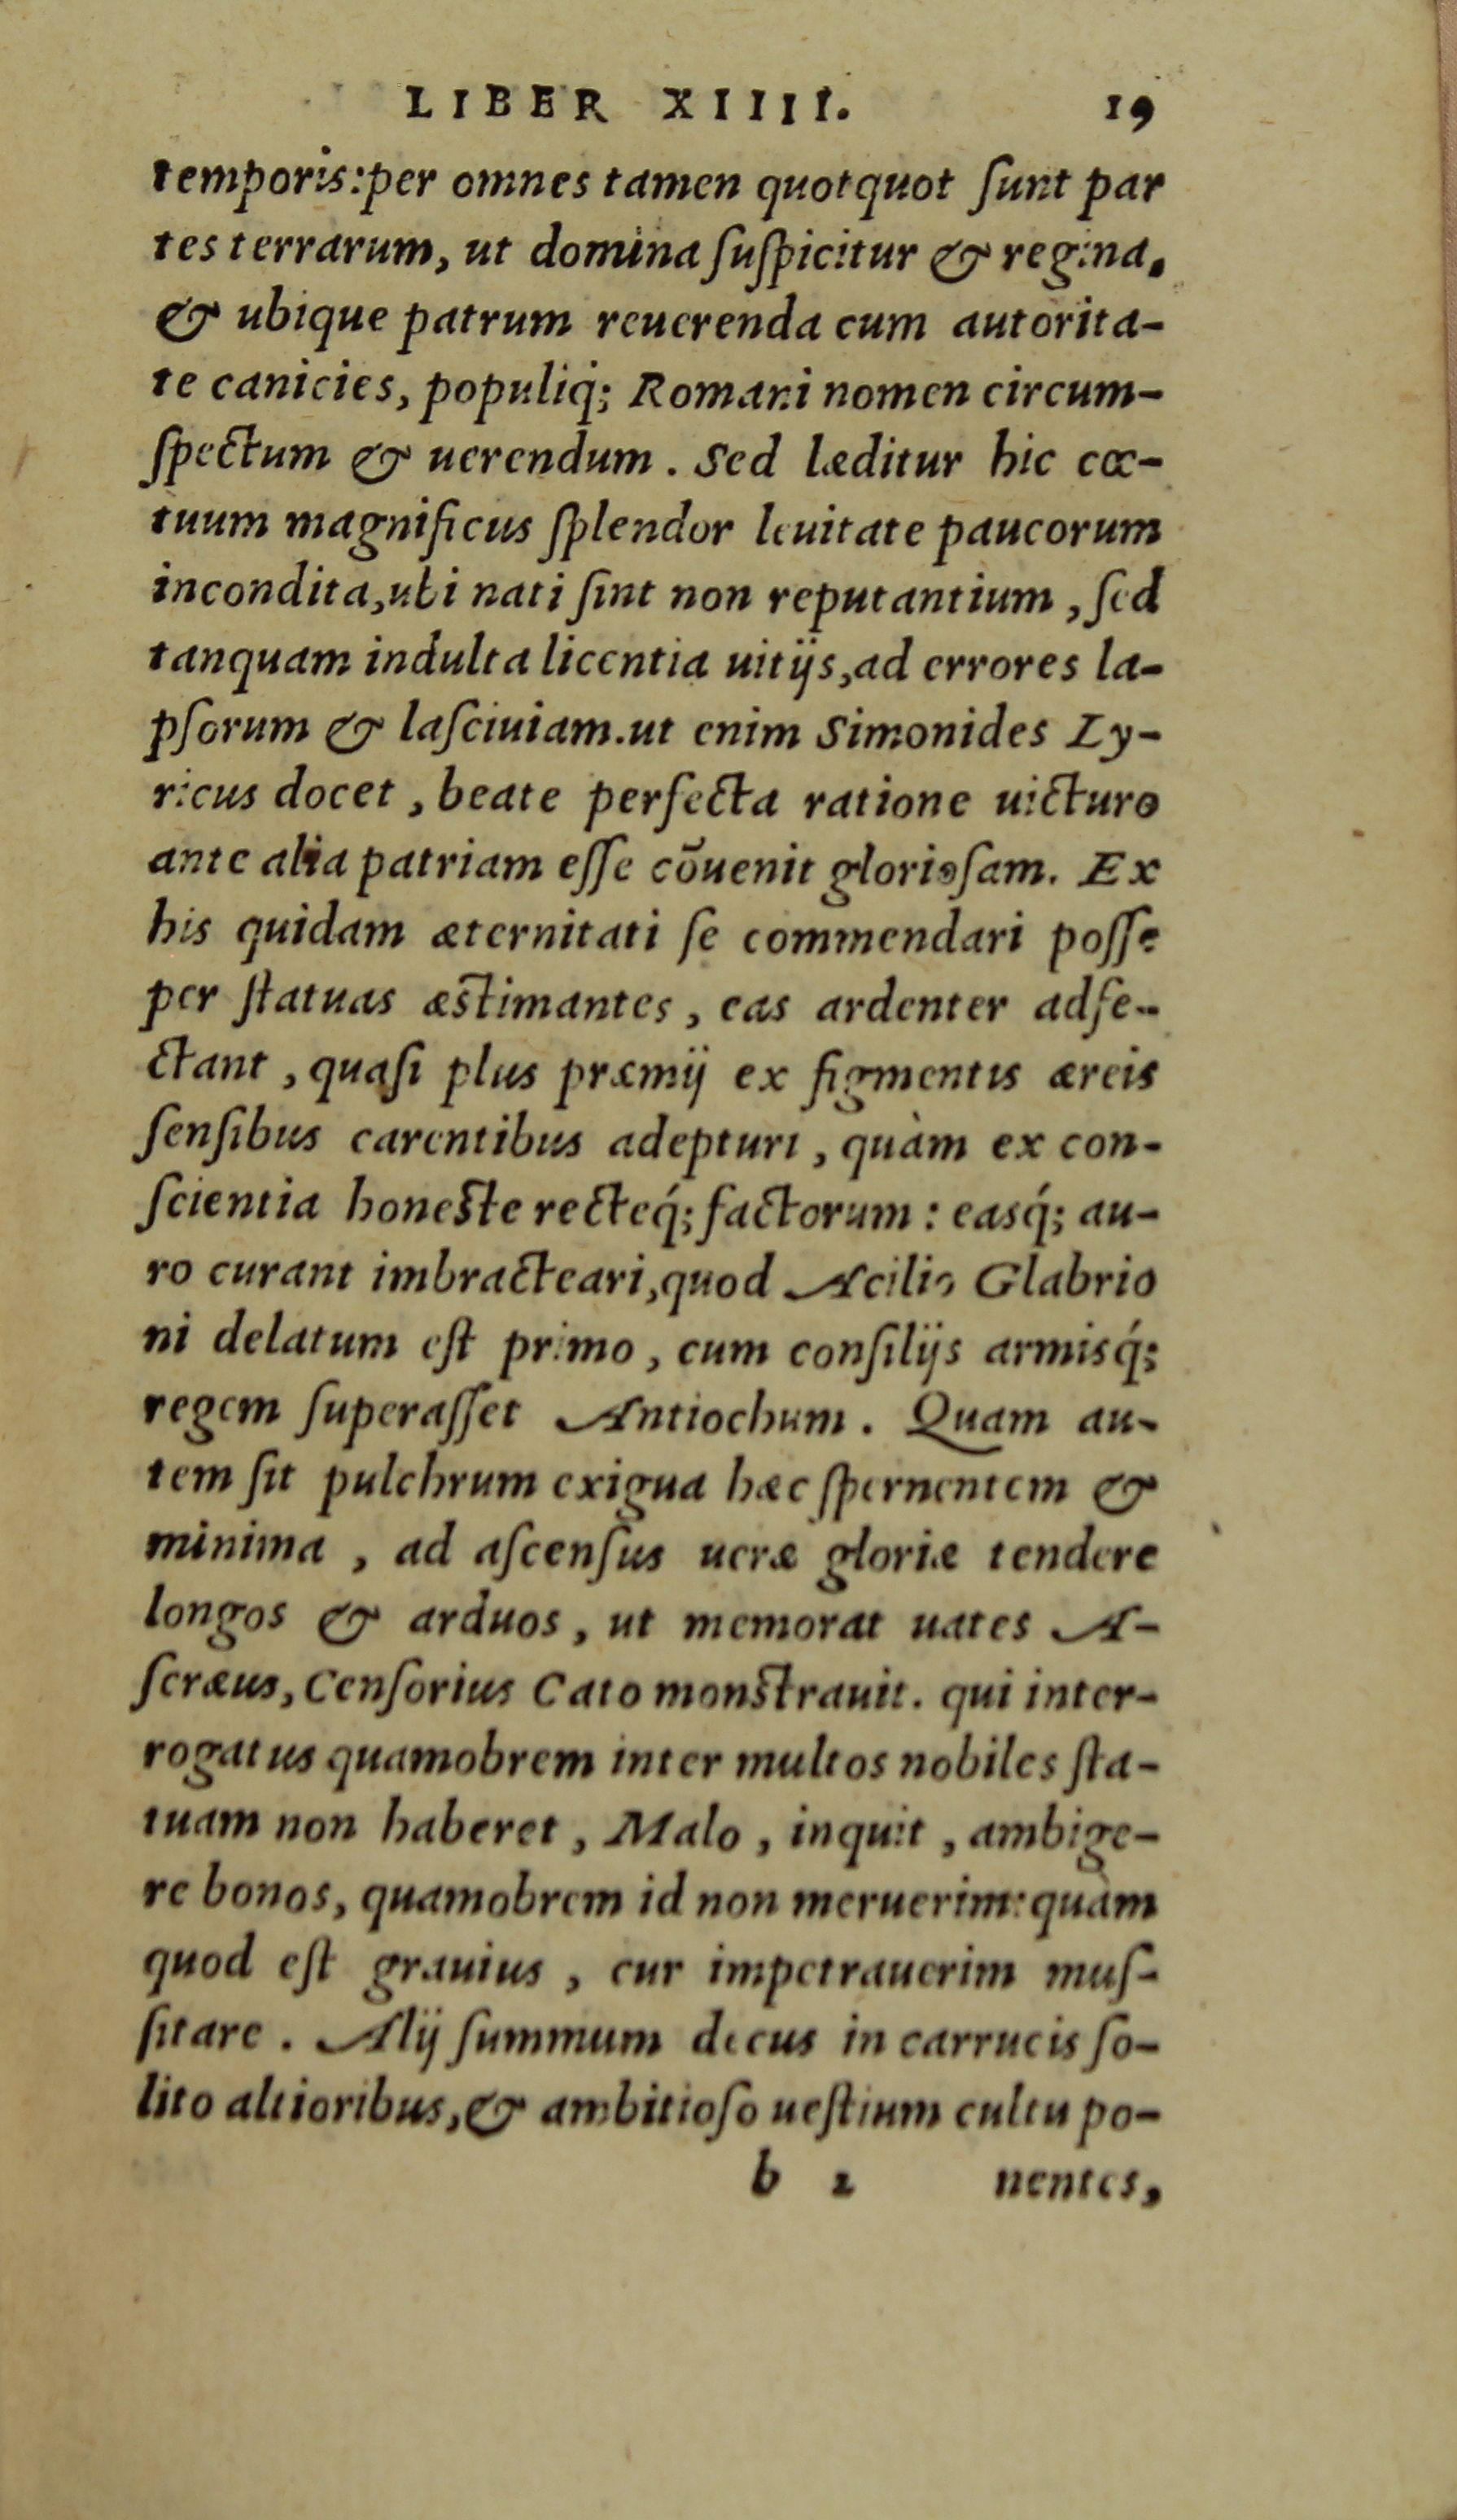 LIBER XIIII. 19
temporis: per omnes tamen quotquot ſunt par
tes terrarum, ut domina ſuſpicitur & regina,
& ubique patrum reuerenda cum autorita-
te canicies, populiq́; Romani nomen circum-
ſpectum & uerendum. Sed læditur hic cœ-
tuum magnificus ſplendor leuitate paucorum
incondita, ubi nati ſint non reputantium, ſed
tanquam indulta licentia uitijs, ad errores la-
pſorum & laſciuiam. ut enim Simonides Ly-
ricus docet, beate perfecta ratione uicturo
ante alia patriam eſſe cōuenit glorioſam. Ex
his quidam æternitati ſe commendari poſſe
per ſtatuas æstimantes, eas ardenter adfe-
ctant, quaſi plus præmij ex figmentis æreis
ſenſibus carentibus adepturi, quàm ex con-
ſcientia honeste recteq́; factorum: easq́; au-
ro curant imbracteari, quod Acilio Glabrio
ni delatum eſt primo, cum conſilijs armisq́;
regem ſuperaſſet Antiochum. Quam au-
tem ſit pulchrum exigua hæc ſpernentem &
minima, ad aſcenſus ueræ gloriæ tendere
longos & arduos, ut memorat uates A-
ſcræus, Cenſorius Cato monstrauit. qui inter-
rogatus quamobrem inter multos nobiles ſta-
tuam non haberet, Malo, inquit, ambige-
re bonos, quamobrem id non meruerim: quàm
quod eſt grauius, cur impetrauerim muſ-
ſitare. Alij ſummum decus in carrucis ſo-
lito altioribus, & ambitioſo ueſtium cultu po-
b 2 nentes,